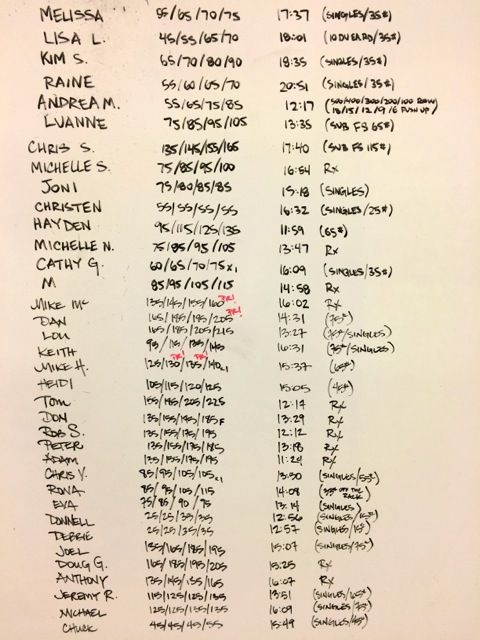 MELISSA 55/65/70/75 17:37 (SINGLES/35#)
LISA L. 45/55/65/70 18:01 (10 DU EA RD/35#)
KIM S. 65/70/80/90 18:35 (SINGLES/35#)
RAINE 55/60/65/70 20:51 (SINGLES/35#)
ANDREA M. 55/65/75/85 12:17 (500/400/300/200/100 ROW/ 18/15/12/9/6 PUSH UP)
LUANNE 75/85/95/105 13:35 (SUB FS 65#)
CHRIS S. 135/145/155/165 17:40 (SUB FS 115#)
MICHELLE S. 75/85/95/100 16:54 Rx
JONI 75/80/85/85 15:18 (SINGLES)
CHRISTEN 55/55/55/55 16:32 (SINGLES/25#)
HAYDEN 95/115/125/135 11:59 (65#)
MICHELLE N. 75/85/95/105 13:47 Rx
CATHY G. 60/65/70/75x1 16:09 (SINGLES/35#)
M 85/95/105/115 14:58 Rx
MIKE Mc 135/145/155/160 PR! 16:02 Rx
DAN 165/185/195/205 PR! 14:31 (75#)
LOU 165/185/205/215 13:27 (75#/SINGLES)
KEITH 95/115/135/145 16:31 (75#/SINGLES)
MIKE H. 125/130 PR!/135 PR!/140x1 15:37 (65#)
HEIDI 105/115/120/125 15:05 (45#)
TOM 155/185/205/225 12:17 Rx
DON 135/155/145/185F 13:29 Rx
ROB S. 135/155/175/195 12:12 Rx
PETER 135/155/175/185 13:18 Rx
ADAM 135/155/175/195 11:24 Rx
CHRIS V. 85/95/105/105x1 13:50 (SINGLES/55#)
RONA 85/95/105/115 14:08 (55# OFF THE RACK)
EVA 75/85/90/75 13:14 (SINGLES)
DONNELL 25/25/35/35 12:56 (SINGLES/15#)
DEBBIE 25/25/35/35 12:57 (SINGLES/15#)
JOEL 155/165/185/195 15:07 (SINGLES/75#)
DOUG G. 165/185/195/205 15:25 Rx
ANTHONY 135/145/155/165 16:07 Rx
JEREMY R. 115/125/125/135 13:51 (SINGLES/65#)
MICHAEL 125/125/135/135 16:09 (SINGLES/75#)
CHUCK 45/45/45/55 15:49 (SINGLES/45#)